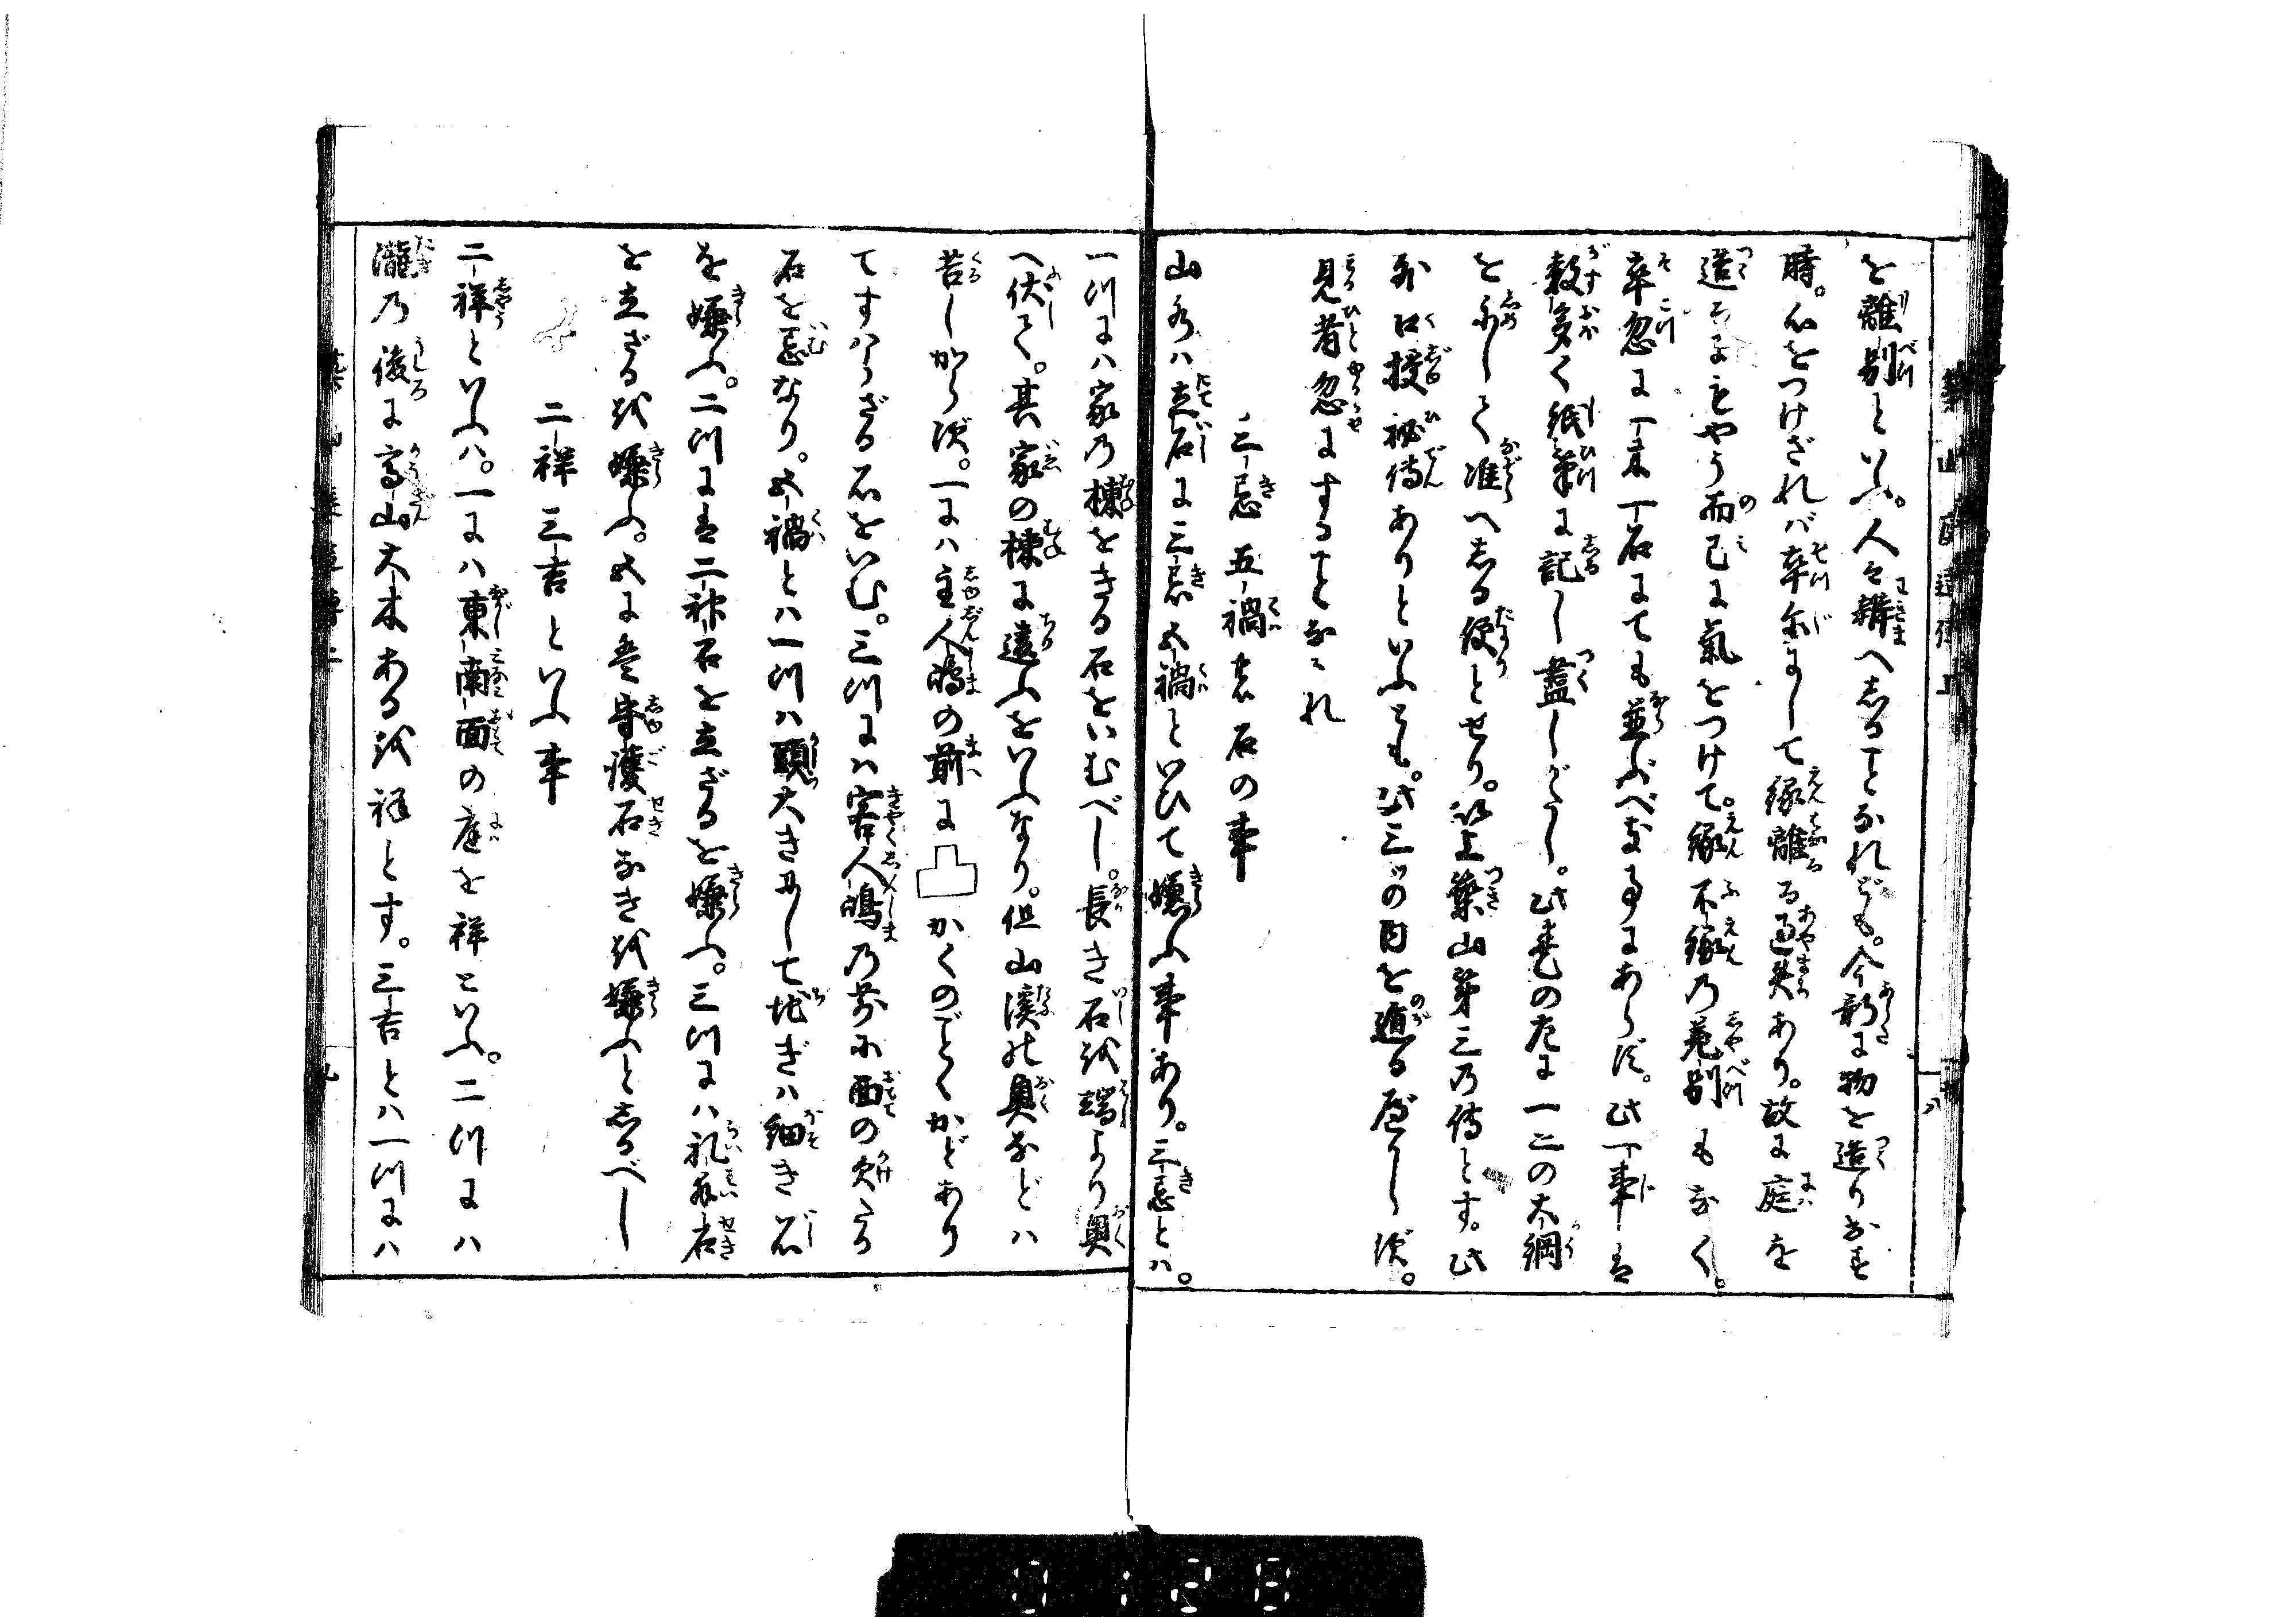 を離別といふ。人々辨へしることなれども。今新に物を造りなす
時。心をつけざれバ卒尓にして縁離るる過失あり。故に庭を
造るにもやう而已に氣をつけて。縁不縁乃差別もなく。
卒忽に一木一石にても並ぶべき事にあらず。此一事は
数多く紙筆に記し盡しがたし。此巻の左に一二の大綱
を示して准へしる便とせり。以上築山第三乃傳とす。此
外口授秘傳ありといふとも。此三ツの内を遁るべからず。
見者忽にすることなかれ
三忌五禍立石の事
山水ハ立石に三忌五禍といひて嫌ふ事あり。三忌とハ。
一川にハ家乃棟をきる石をいむべし。長き石越端より奥
へ伏て。其家の棟に違ふをいふなり。但山溪の奥などハ
苦しからず。一にハ主人嶋の前に凸かくのごとくかどあり
てすハらざる石をいむ。三川にハ客人嶋乃前に面の欠たる
石を忌なり。五禍とハ一川ハ頭大きにして地ぎハ細き石
を嫌ふ。二川には二神石を立ざるを嫌ふ。三川にハ礼拝石
を立ざる越嫌ふ。五に至守護石なき越嫌ふと志るべし
二祥三吉といふ事
二祥といふハ。一にハ東南面の庭を祥といふ。二川にハ
瀧乃後に高山大木ある越祥とす。三吉とハ一川にハ
築山庭造傳上
八
九
0128